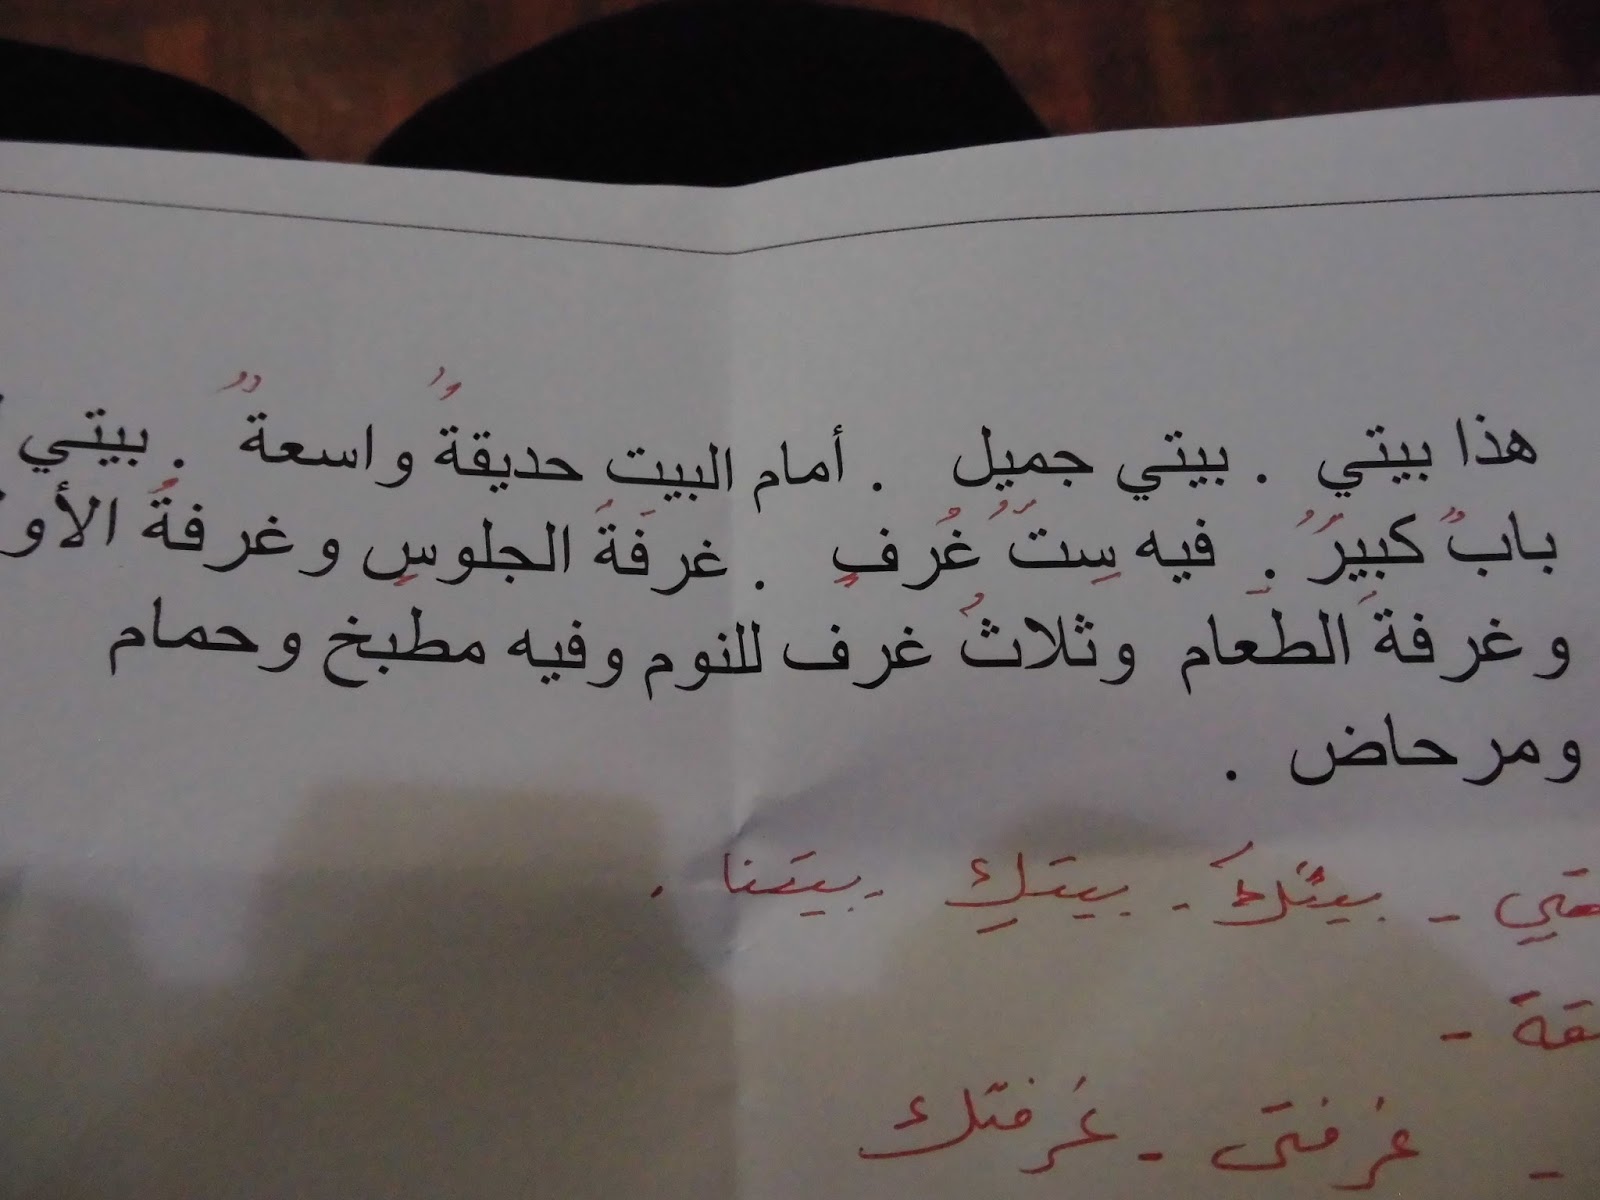 هذا بيتي . بيتي جميل . أمام البيت حديقةٌ واسعةٌ . بيتي
بابٌ كبيرٌ . فيه سِتُ غُرفٍ . غرفَةُ الجلوسِ وغرفةُ
وغرفةُ الطَعَام وثلاثُ غرف للنوم وفيه مطبخ وحمام
ومرحاض .
- بيتُكَ - بيتَكِ - بيتَنا .
-
- غرفتي - غرفتك